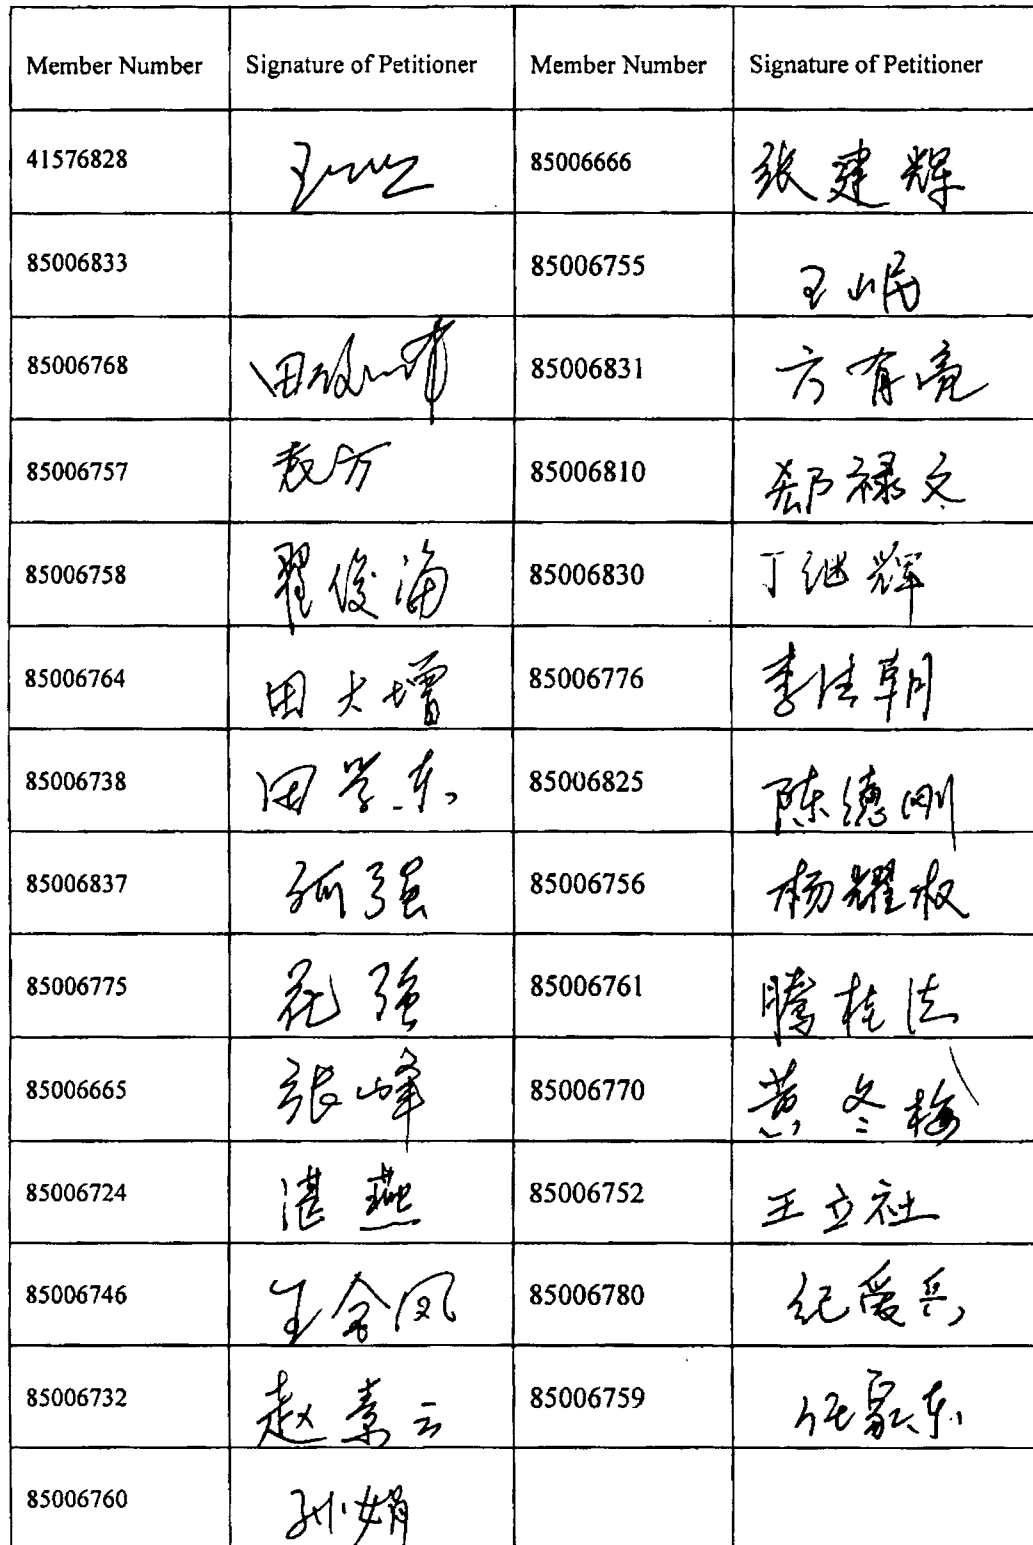 Member Number Signature of Petitioner Member Number Signature of Petitioner
41576828 85006666 张建辉
85006833 85006755 王山岷
85006768 田 85006831 方有亮
85006757 袁方 85006810 郄禄文
85006758 翟俊海 85006830 丁继辉
85006764 田大增 85006776 李佳朝
85006738 田学东 85006825 陈德刚
85006837 孤强 85006756 杨耀权
85006775 花强 85006761 腾桂法
85006665 张峰 85006770 黄冬梅
85006724 湛燕 85006752 王立社
85006746 王金凤 85006780 纪爱兵
85006732 赵素云 85006759 任家东
85006760 孙娟